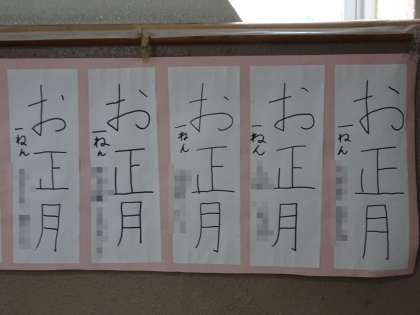 お正月
一ねん
お正月
一ねん
お正月
一ねん
お正月
一ねん
お正月
一ねん